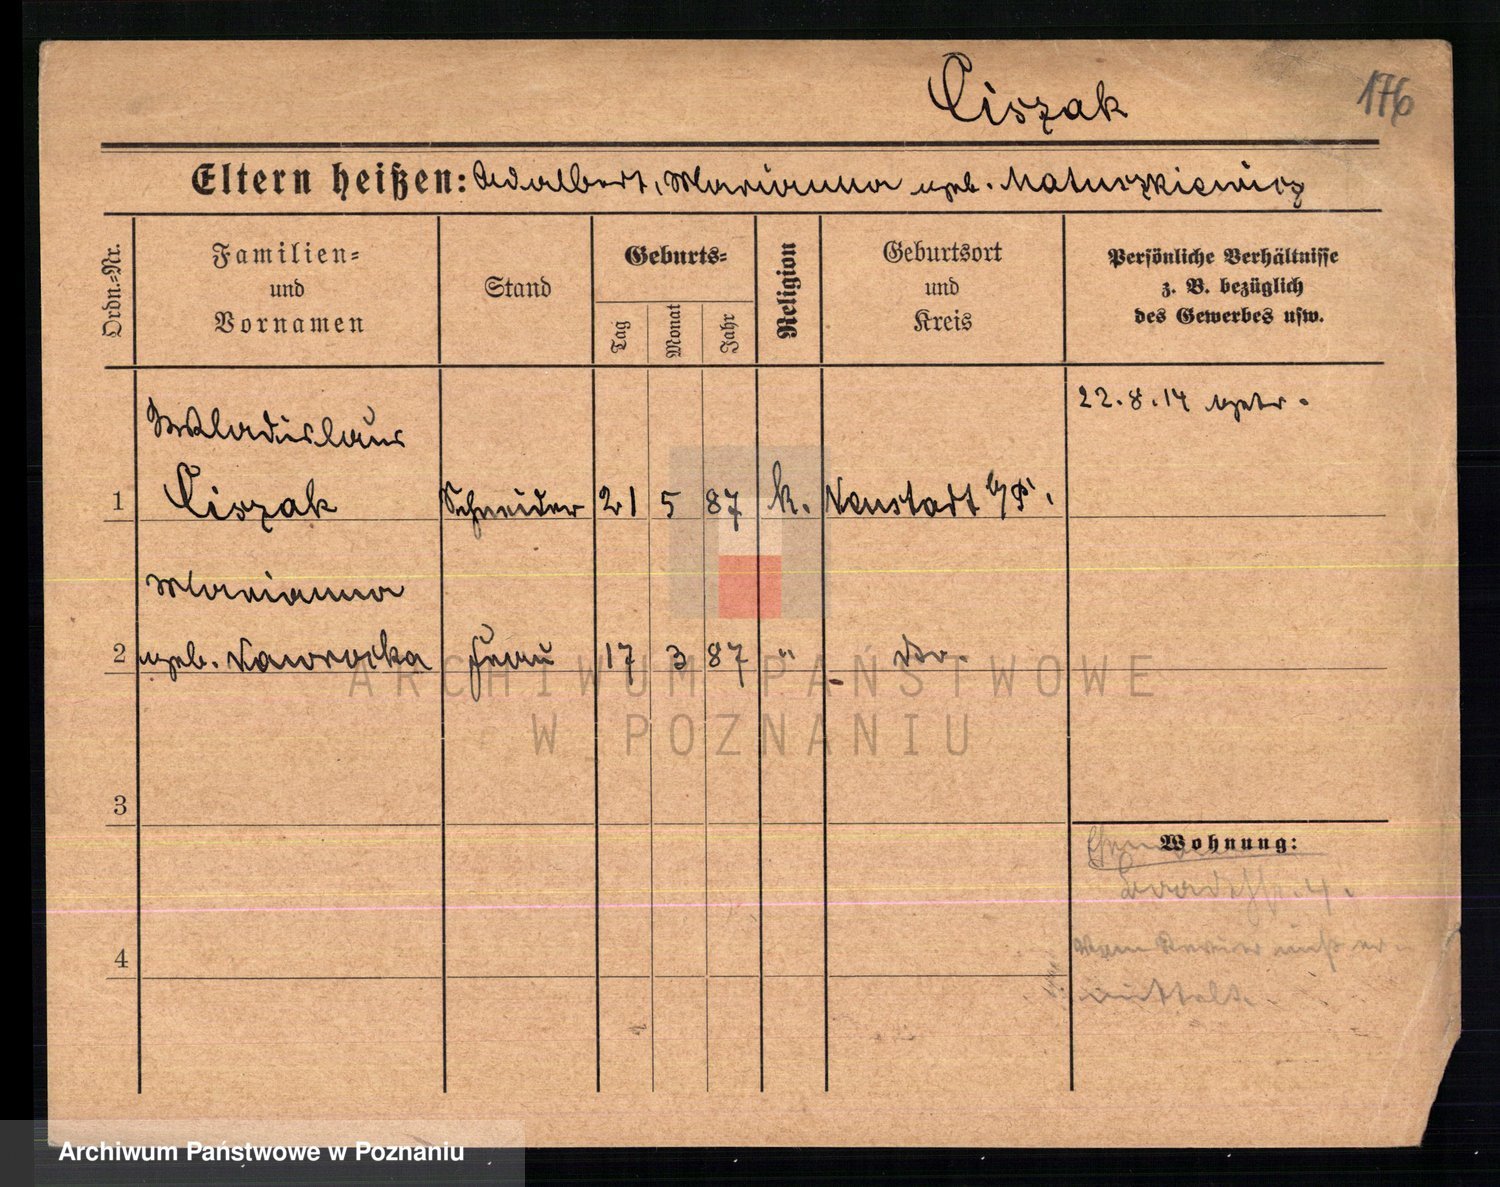 Ciszak 176
Eltern heißen: Adalbert, Marianna geb. Matuszkiewicz
Ordn.=Nr.
Familien=
und
Vornamen
Stand
Geburts=
Tag
Monat
Jahr
Religion
Geburtsort
und
Kreis
Persönliche Verhältnisse
z. B. bezüglich
des Gewerbes usw.
Wladislaus
22.8.14 getr.
1 Ciszak Schneider 21 5 87 k. Neustadt b/P.
Marianna
2 geb. Nawrocka Frau 17 3 87 " do.
3
Wohnung:
4
ARCHIWUM PAŃSTWOWE
W POZNANIU
Archiwum Państwowe w Poznaniu